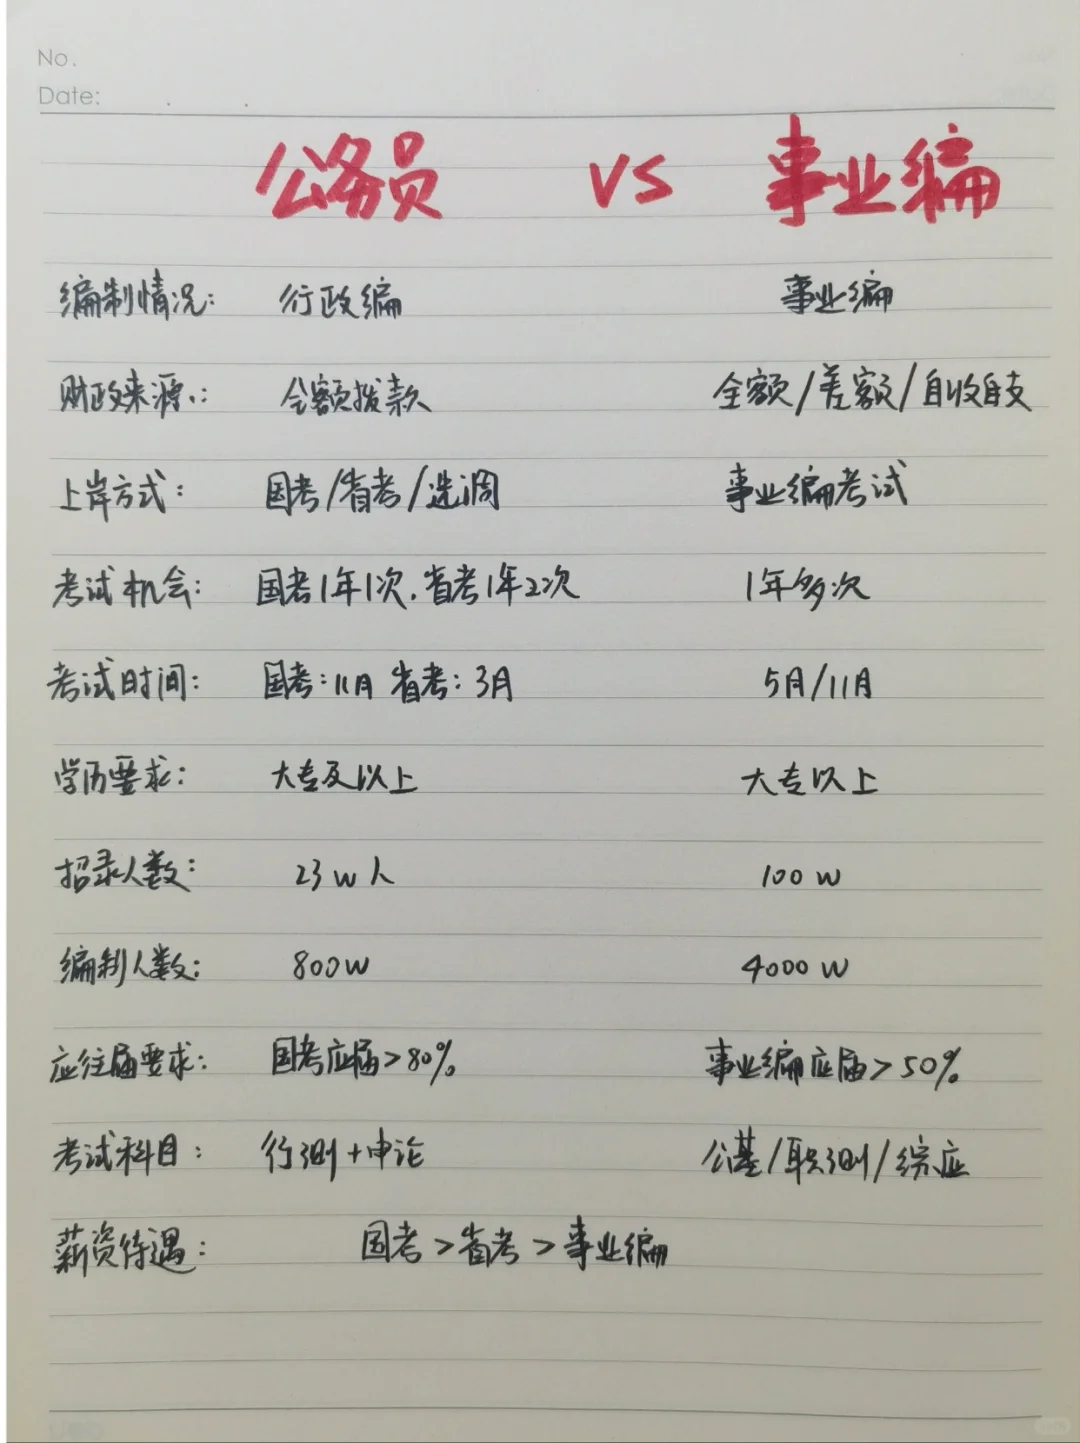 No.
Date:
公务员 VS 事业编
编制情况: 行政编 事业编
财政来源: 全额拨款 全额/差额/自收自支
上岸方式: 国考/省考/选调 事业编考试
考试机会: 国考1年1次,省考1年2次 1年多次
考试时间: 国考:11月 省考:3月 5月/11月
学历要求: 大专及以上 大专以上
招录人数: 23w人 100w
编制人数: 800w 4000w
应往届要求: 国考应届>80% 事业编应届>50%
考试科目: 行测+申论 公基/职测/综应
薪资待遇: 国考>省考>事业编